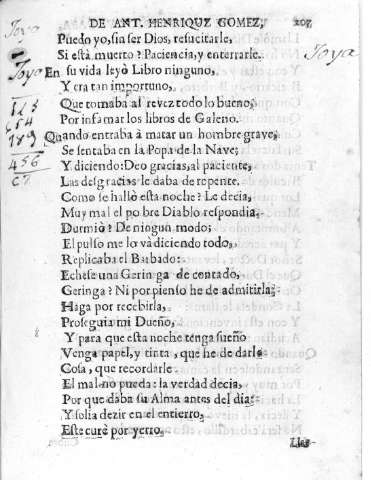 DE ANT. HENRIQUZ GOMEZ, 207
Joyo
Puedo yo, sin ser Dios, resucitarle,
Si està muerto? Paciencia, y enterrarle.
Joya
Joyo
En su vida leyò Libro ninguno,
Y era tan importuno,
Que tomaba al revez todo lo bueno,
Por infamar los libros de Galeno.
189
Quando entraba à matar un hombre grave,
Se sentaba en la Popa de la Nave;
456
Y diciendo: Deo gracias, al paciente,
Las desgracias le daba de repente.
Como se hallò esta noche? Le decia,
Muy mal el pobre Diablo respondia.
Durmiò? De ningun modo;
El pulso me lo và diciendo todo,
Replicaba el Barbado:
Echese una Geringa de contado,
Geringa? Ni por pienso he de admitirla;
Haga por recebirla,
Proseguia mi Dueño,
Y para que esta noche tenga sueño
Venga papel, y tinta, que he de darle
Cosa, que recordarle
El mal no pueda: la verdad decia,
Por que daba su Alma antes del dia:
Y solia dezir en el entierro,
Este curè por yerro.
Lle-